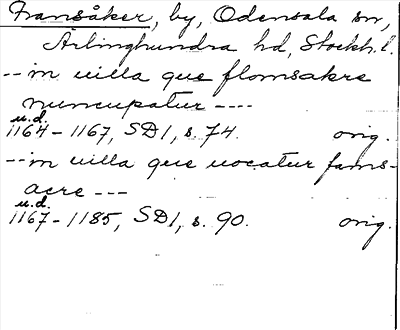 Fransåker, by, Odensala sn,
Ärlinghundra hd, Stockh. l.
--in uilla que flomsakre
nuncupatur ----
u.d.
1164-1167, SD1, s. 74. orig.
--in uilla que uocatur fams-
acre ---
u.d.
1167-1185, SD1, s. 90. orig.